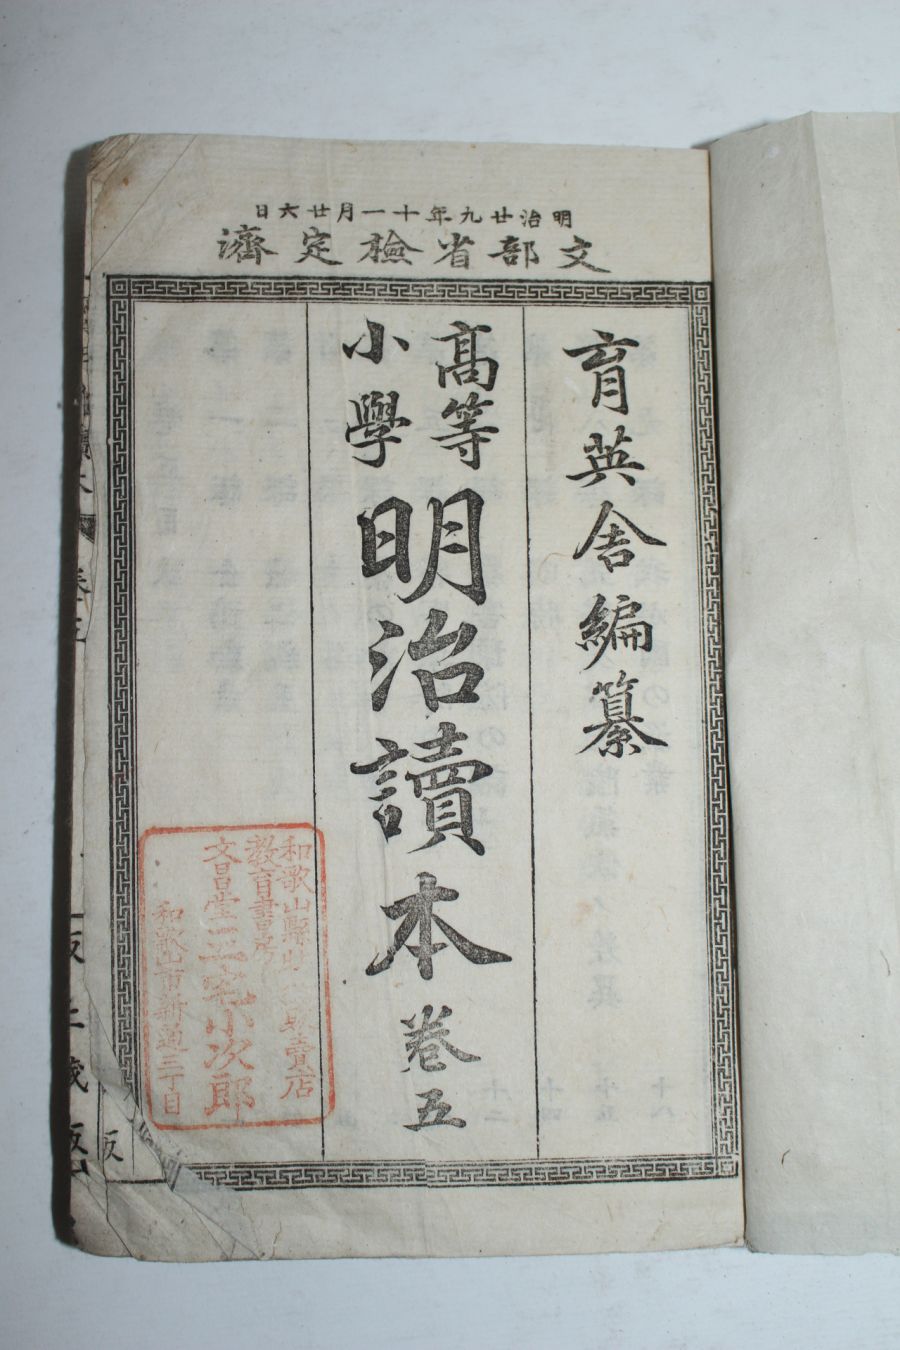 明治廿九年十一月廿六日
文部省檢定濟
育英舍編纂
高等
小學
明治讀本卷五
和歌山縣
賣店
教育書房
文昌堂三宅小次郎
和歌山市新通三丁目